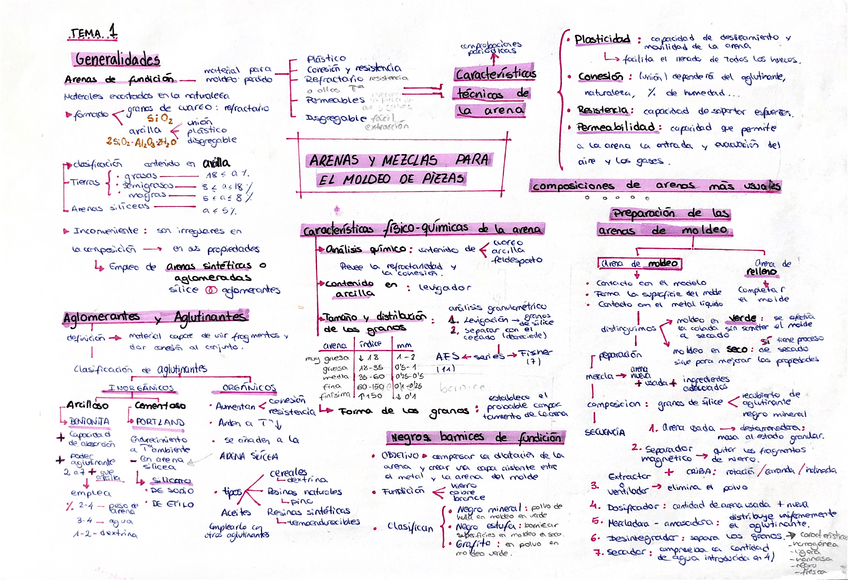 TEMA 1
Generalidades
Arenas de fundición
material para
moldeo perdido
Plástico
Cohesión y resistencia
Refractario resistencia
a altas Tª
Permeables
Disgregable fácil
extracción
Materiales encontrados en la naturaleza
formado
granos de cuarzo: refractario
SiO2
arcilla
unión
plástico
disgregable
2SiO2·Al2O3·2H2O
clasificación contenido en arcilla
Tierras
grasas 18 ≤ a %
semigrasas 8 ≤ a ≤ 18 %
magras 5 ≤ a ≤ 8 %
Arenas silíceas a ≤ 5 %
Inconveniente: son irregulares en
la composición → en sus propiedades
Empleo de arenas sintéticas o
aglomeradas
sílice aglomerantes
Aglomerantes y Aglutinantes
definición → material capaz de unir fragmentos y
dar cohesión al conjunto.
Clasificación de aglutinantes
INORGÁNICOS
Arcilloso
BENTONITA
+ Capacidad
de absorción
+ poder
aglutinante
2 o 7 + que
arcilla
emplea
% 2-4 →
3-4 → agua
1-2 → dextrina
Cementoso
PORTLAND
Endurecimiento
a T ambiente
en arena
sílicea
Silicatos
DE SODIO
DE ETILO
ORGÁNICOS
Aumentan
cohesión
resistencia
Arden a T
se añaden a la
ARENA SÍLICEA
tipos
cereales
dextrina
Resinas naturales
pino
Resinas sintéticas
termoendurecibles
Aceites
Emplearlo con
otros aglutinantes
comprobaciones
periódicas
Características
técnicas de
la arena
ARENAS Y MEZCLAS PARA
EL MOLDEO DE PIEZAS
Características físico-químicas de la arena
Análisis químico: contenido de
cuarzo
arcilla
feldespato
Prevee la refractariedad y
la cohesión.
Contenido en
arcilla : levigador
Tamaño y distribución
de los granos :
análisis granulométrico
1. Levigación → granos
de sílice
2. Separar con el
cedazo (decreciente)
arena índice mm
muy gruesa ↓ 18 1-2
gruesa 18-35 0'5-1
media 35-60
fina 60-150
finísima ↑ 150 ↓ 0'1
AFS → series → Fisher
(11) (7)
Forma de los granos :
establece el
probable compor
tamiento de la arena
Negros, barnices de fundición
OBJETIVO → compensar la dilatación de la
arena y crear una capa aislante entre
el metal y la arena del molde
Fundición
hierro
cobre
bronce
Clasifican
Negro mineral: polvo de
hulla en moldeo en verde
Negro estufa: barnizar
superficies en moldeo en seco.
Grafito: en polvo en
moldeo verde.
Plasticidad: capacidad de deslizamiento y
movilidad de la arena
facilita el llenado de todos los huecos.
Cohesión: (unión) dependerá del aglutinante,
naturaleza, % de humedad...
Resistencia: capacidad de soportar esfuerzos.
Permeabilidad: capacidad que permite
a la arena la entrada y evacuación del
aire y los gases.
composiciones de arenas más usuales
Preparación de las
arenas de moldeo
arena de moldeo
Contacto con el modelo
Forma la superficie del molde
Contacto con el metal líquido
arena de
relleno
Completar
el molde
distinguimos
moldeo en verde: se efectúa
la colada sin someter el molde
a secado
sí tiene proceso
moldeo en seco: de secado
sirve para mejorar las propiedades
preparación
mezcla → arena
nueva + usada + ingredientes
adecuados
composición: granos de sílice
recubierto de
aglutinante
negro mineral
SECUENCIA
1. Arena usada → desterronadora:
masa al estado granular.
2. Separador → quitar los fragmentos
magnético de hierro.
3. Extractor + CRIBA: rotación / / inclinada
ventilador → elimina el polvo
4. Dosificador: cantidad de arena usada + nueva
5. Mezcladora - amasadora: distribuye uniformemente
el aglutinante.
6. Desintegrador: separa los granos. → características
7. Secador: comprueba la cantidad
de agua introducida en 4)
- homogénea
- ligera
- esponjosa
- fresca